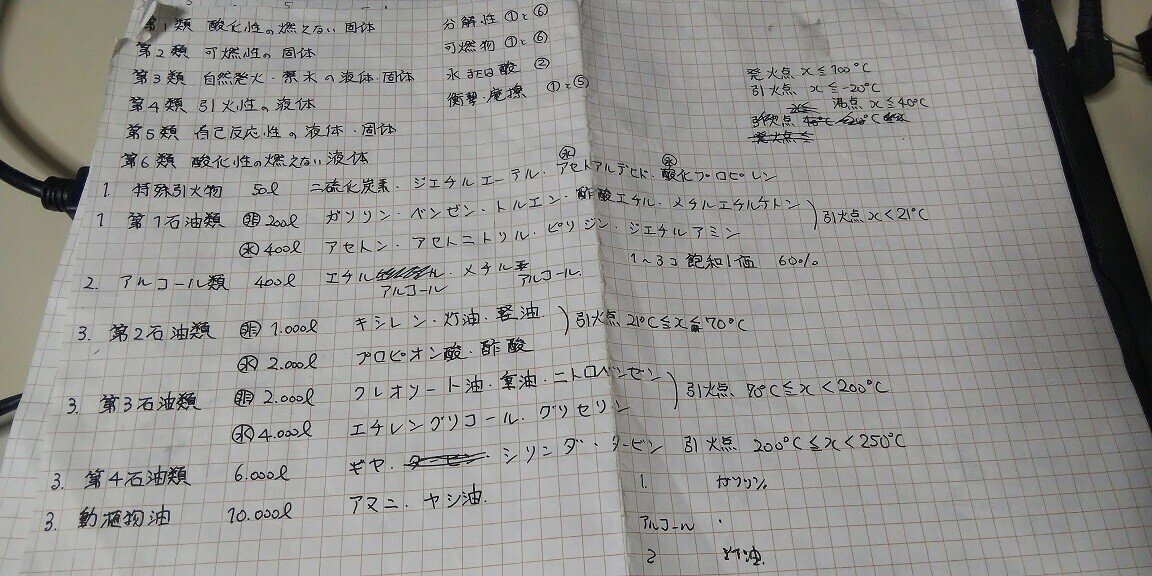 第1類 酸化性の燃えない固体 分解性 ①と⑥
第2類 可燃性の固体 可燃物 ①と⑥
第3類 自然発火・禁水の液体・固体 ②
第4類 引火性の液体 衝撃・摩擦 ①と⑤
第5類 自己反応性の液体・固体
第6類 酸化性の燃えない液体
発火点 x≦100℃
引火点 x≦-20℃
沸点 x≦40℃
水 水
1 特殊引火物 50l 二硫化炭素・ジエチルエーテル・アセトアルデヒド・酸化プロピレン
1 第1石油類 200l ガソリン・ベンゼン・トルエン・酢酸エチル・メチルエチルケトン 引火点 x<21℃
水 400l アセトン・アセトニトリル・ピリジン・ジエチルアミン
2. アルコール類 400l エチルアルコール・メチルアルコール 1〜3コ 飽和1価 60%
3. 第2石油類 1.000l キシレン・灯油・軽油 引火点 21℃≦x≦70℃
水 2.000l プロピオン酸・酢酸
3. 第3石油類 2.000l クレオソート油・重油・ニトロベンゼン 引火点 70℃≦x<200℃
水 4.000l エチレングリコール・グリセリン
3. 第4石油類 6.000l ギヤ・シリンダ・タービン 引火点 200℃≦x<250℃
3. 動植物油 10.000l アマニ・ヤシ油
1. ガソリン
アルコール
2 灯油